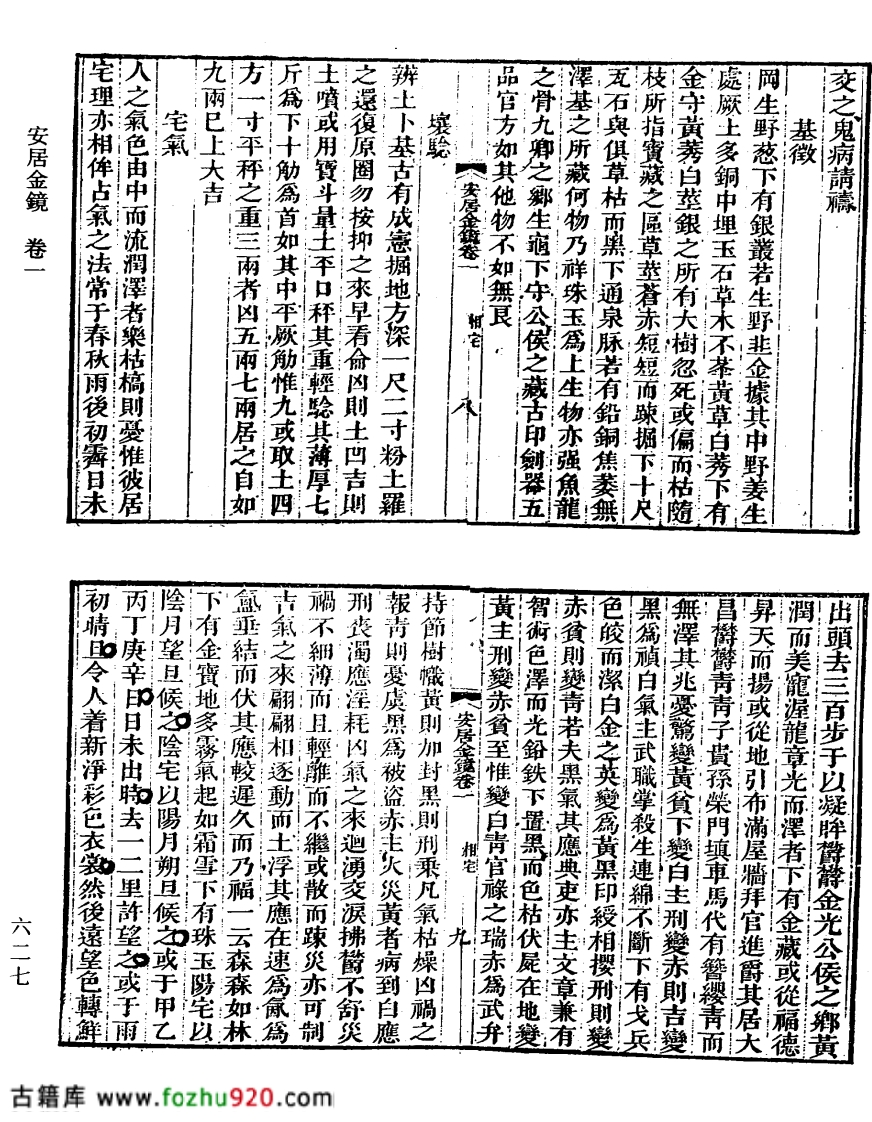 交之鬼病請禱
基徵
岡生野葱下有銀叢若生野韭金據其中野姜生
處厥上多銅中埋玉石草木不莑黃草白莠下有
金守黃莠白莖銀之所有大樹忽死或偏而枯隨
枝所指寶藏之區草莖蒼赤短短而踈掘下十尺
瓦石與俱草枯而黑下通泉脉若有鉛銅焦萎無
澤基之所藏何物乃祥珠玉爲上生物亦强魚龍
之骨九卿之鄉生龜下守公侯之藏古印劍器五
品官方如其他物不如無艮
安居金鏡卷一 相宅 八
壤驗
辨土卜基古有成憲掘地方深一尺二寸粉土羅
之還復原圈勿按抑之來早看侖凶則土凹吉則
土噴或用寶斗量土平口秤其重輕驗其薄厚七
斤爲下十觔爲首如其中平厥觔惟九或取土四
方一寸平秤之重三兩者凶五兩七兩居之自如
九兩巳上大吉
宅氣
人之氣色由中而流潤澤者樂枯槁則憂惟彼居
宅理亦相侔占氣之法常于春秋雨後初霽日未
安居金鏡 卷一
出頭去三百步于以凝眸欝欝金光公侯之鄉黃
潤而美寵渥龍章光而澤者下有金藏或從福德
昇天而揚或從地引布滿屋牆拜官進爵其居大
昌欝欝靑靑子貴孫榮門填車馬代有簪纓靑而
無澤其兆憂驚變黃貧下變白主刑變赤則吉變
黑爲禎白氣主武職掌殺生連綿不斷下有戈兵
色皎而潔白金之英變爲黃黑印綬相攖刑則變
赤貧則變靑若夫黑氣其應典吏亦主文章兼有
智術色澤而光鉛鉄下置黑而色枯伏屍在地變
黃主刑變赤貧至惟變白靑官祿之瑞赤爲武弁
安居金鏡卷一 相宅 九
持節樹幟黃則加封黑則刑乗凡氣枯燥凶禍之
報靑則憂虞黑爲被盜赤主火災黃者病到白應
刑喪濁應淫耗凶氣之來迴湧交淚拂欝不舒災
禍不細薄而且輕離而不繼或散而踈災亦可制
吉氣之來翩翩相逐動而土浮其應在速爲氤爲
氳垂結而伏其應較遲久而乃福一云森森如林
下有金寶地多霧氣起如霜雪下有珠玉陽宅以
陰月望旦候之陰宅以陽月朔旦候之或于甲乙
丙丁庚辛日日未出時去一二里許望之或于雨
初晴旦令人着新淨彩色衣裳然後遠望色轉鮮
六二七
古籍库 www.fozhu920.com